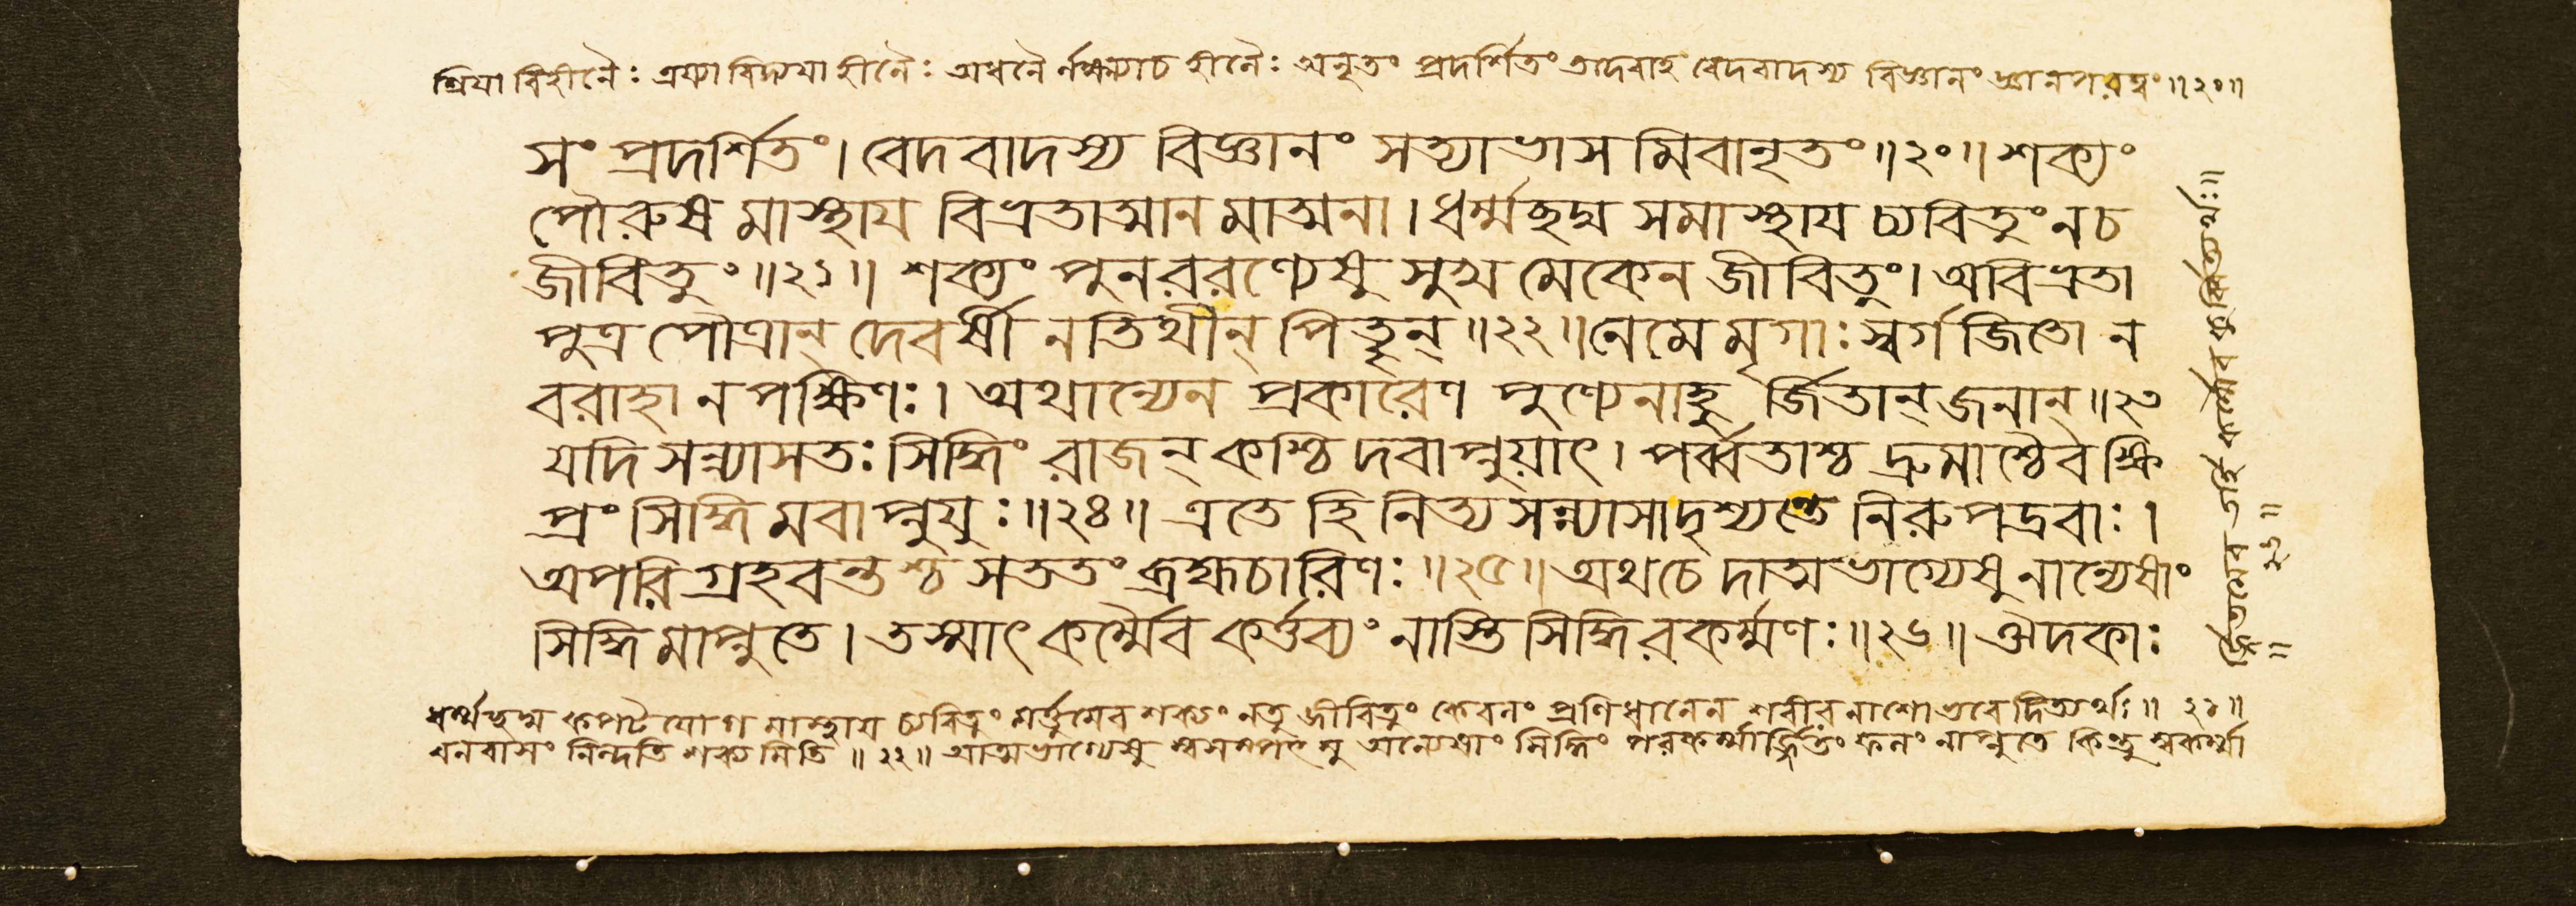 শ্রিযা বিহীনৈঃ ত্রয্যা বিদ্যযা হীনৈঃ অধনৈ র্নক্ষ্ম্যাচ হীনৈঃ অনৃতং প্রদর্শিতং তদেবাহ বেদবাদস্য বিজ্ঞানং জ্ঞানপরত্বং॥২০॥
সং প্রদর্শিতং। বেদবাদস্য বিজ্ঞানং সত্যাভাস মিবানৃতং॥২০॥ শক্যং
পৌরুষ মাস্থায বিভ্রতাত্মান মাত্মনা। ধর্ম্মছদ্ম সমাস্থায চ্যবিতুং নচ
জীবিতুং॥২১॥ শক্যং পুনররণ্যেষু সুখ মেকেন জীবিতুং। অবিভ্রতা
পুত্র পৌত্রান্ দেবর্ষী নতিথীন্ পিতৄন্॥২২॥ নেমে মৃগাঃ স্বর্গ জিতো ন
বরাহা ন পক্ষিণঃ। অথান্যেন প্রকারেণ পুণ্যেনাহু র্জিতান্ জনান্॥২৩
যদি সন্ন্যাসতঃ সিদ্ধিং রাজন্ কশ্চি দবাপ্নুয়াৎ। পর্ব্বতাশ্চ দ্রুমাশ্চৈব ক্ষি
প্রং সিদ্ধি মবাপ্নুযুঃ॥২৪॥ এতে হি নিত্য সন্ন্যাসাদৃশ্যন্তে নিরুপদ্রবাঃ।
অপরিগ্রহবন্তশ্চ সততং ব্রহ্মচারিণঃ॥২৫॥ অথচে দাত্মভাগ্যেষু নান্যেষাং
সিদ্ধি মাপ্নুতে। তস্মাৎ কর্ম্মৈব কর্ত্তব্যং নাস্তি সিদ্ধি রকর্ম্মণঃ॥২৬॥ ঔদকাঃ
ধর্ম্মছদ্ম কপটযোগ মাস্থায চ্যবিতুং মর্ত্তুমেব শক্যং নতু জীবিতুং কেবলং প্রণিধানেন শরীরনাশো ভবেদিত্যর্থঃ॥ ২১॥
বনবাসং নিন্দতি শক্য মিতি॥২২॥ আত্মভাগ্যেষু স্বসম্পৎসু অন্যেষাং সিদ্ধিং পরকর্ম্মার্জ্জিতং ফলং নাপ্নুতে কিন্তু স্বকর্ম্মা
র্জিতমেব তর্হি কর্ম্মৈব কুর্ব্বিত্যর্থঃ॥
॥ ২৬॥